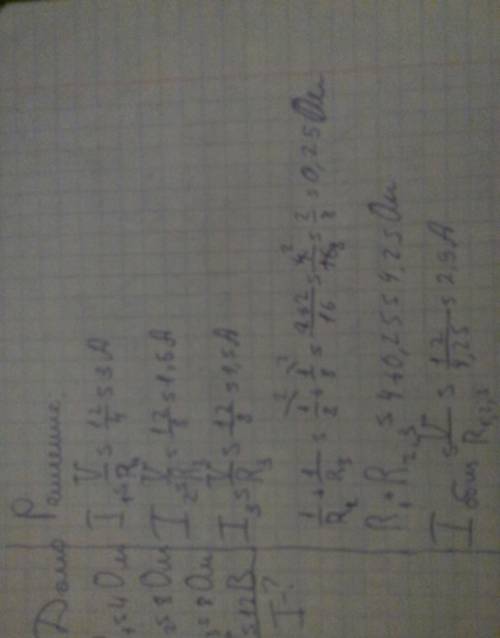 Дано Решение
=4 Ом I₁=V/R₁=12/4=3A
=8 Ом I₂=V/R₂=12/8=1,5A
=8 Ом I₃=V/R₃=12/8=1,5A
=12 В
I-?
1/R₂+1/R₃=1/8+1/8=2+2/16=4/16=2/8=0,25 Ом
R₁+R₂,₃=4+0,25=4,25 Ом
I общ=V/R₁,₂,₃=12/4,25=2,8A